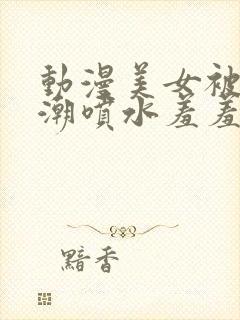 動漫美女被
潮噴水羞羞
黯香